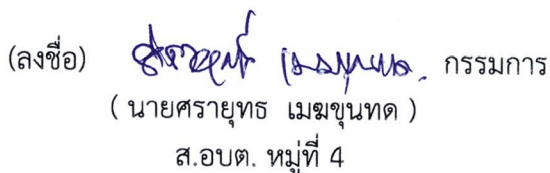 (ลงชื่อ) กรรมการ
( นายศรายุทธ เมฆขุนทด )
ส.อบต. หมู่ที่ 4